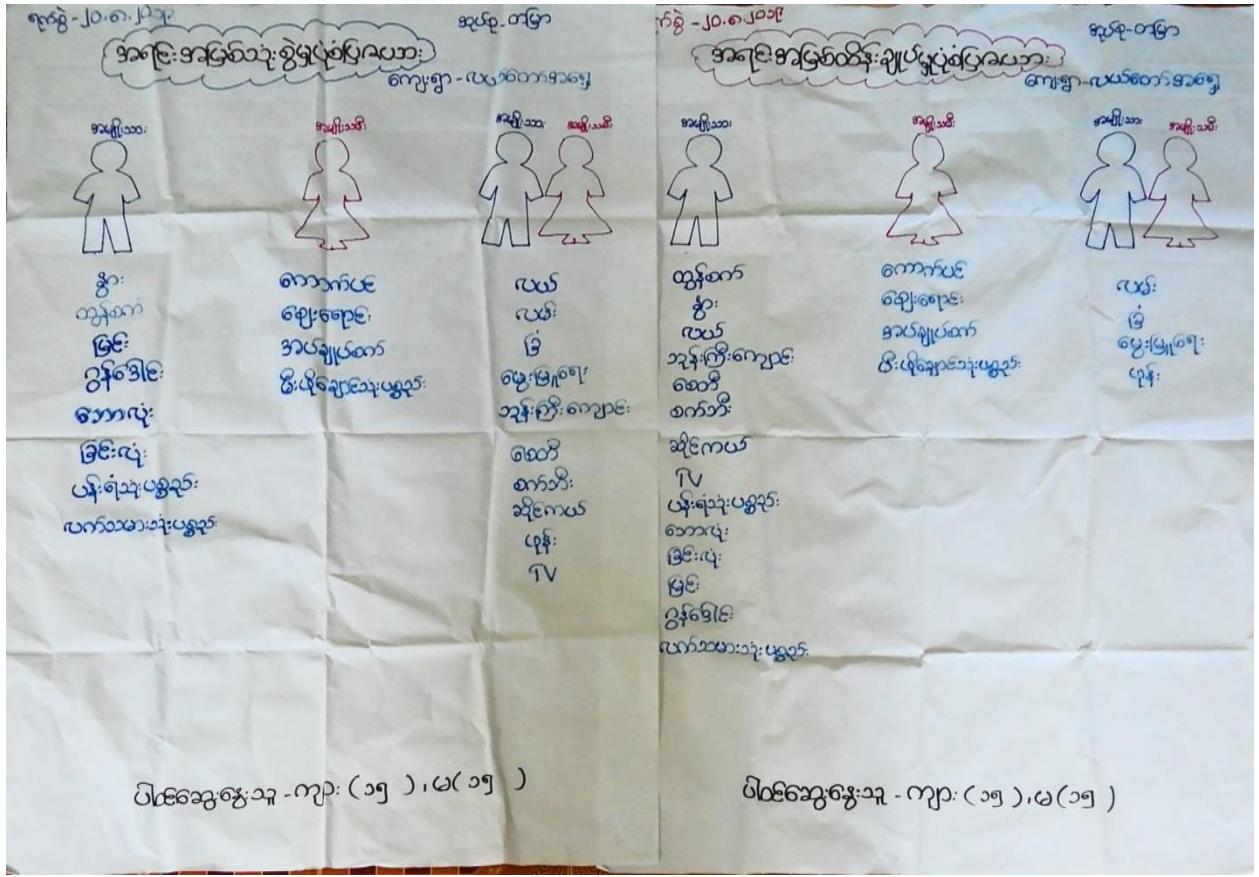 ရက်စွဲ - ၂၀.၈.၂၀၁၉
အုပ်စု - တမြာ
အရင်းအမြစ်သုံးစွဲမှုပုံစံပြဇယား
ကျေးရွာ - လယ်တော်အရှေ့
အမျိုးသား
အမျိုးသမီး
အမျိုးသား အမျိုးသမီး
နွား
ထွန်စက်
မြင်း
ဂွန်ဒေါင်း
ဘောလုံး
ခြင်းလုံး
ပန်းရံသုံးပစ္စည်း
လက်သမားသုံးပစ္စည်း
ကောက်ပင်
ဈေးရောင်း
အပ်ချုပ်စက်
မီးဖိုချောင်သုံးပစ္စည်း
လယ်
လမ်း
ခြံ
မွေးမြူရေး
ဘုန်းကြီးကျောင်း
စေတီ
စက်ဘီး
ဆိုင်ကယ်
ဖုန်း
TV
ပါဝင်ဆွေးနွေးသူ - ကျား (၁၅ ) ၊ မ (၁၅ )
က်စွဲ - ၂၀.၈.၂၀၁၉
အုပ်စု - တမြာ
အရင်းအမြစ်ထိန်းချုပ်မှုပုံစံပြဇယား
ကျေးရွာ - လယ်တော်အရှေ့
အမျိုးသား
အမျိုးသမီး
အမျိုးသား အမျိုးသမီး
ထွန်စက်
နွား
လယ်
ဘုန်းကြီးကျောင်း
စေတီ
စက်ဘီး
ဆိုင်ကယ်
TV
ပန်းရံသုံးပစ္စည်း
ဘောလုံး
ခြင်းလုံး
မြင်း
ဂွန်ဒေါင်း
လက်သမားသုံးပစ္စည်း
ကောက်ပင်
ဈေးရောင်း
အပ်ချုပ်စက်
မီးဖိုချောင်သုံးပစ္စည်း
လမ်း
ခြံ
မွေးမြူရေး
ဖုန်း
ပါဝင်ဆွေးနွေးသူ - ကျား (၁၅ ) ၊ မ (၁၅ )